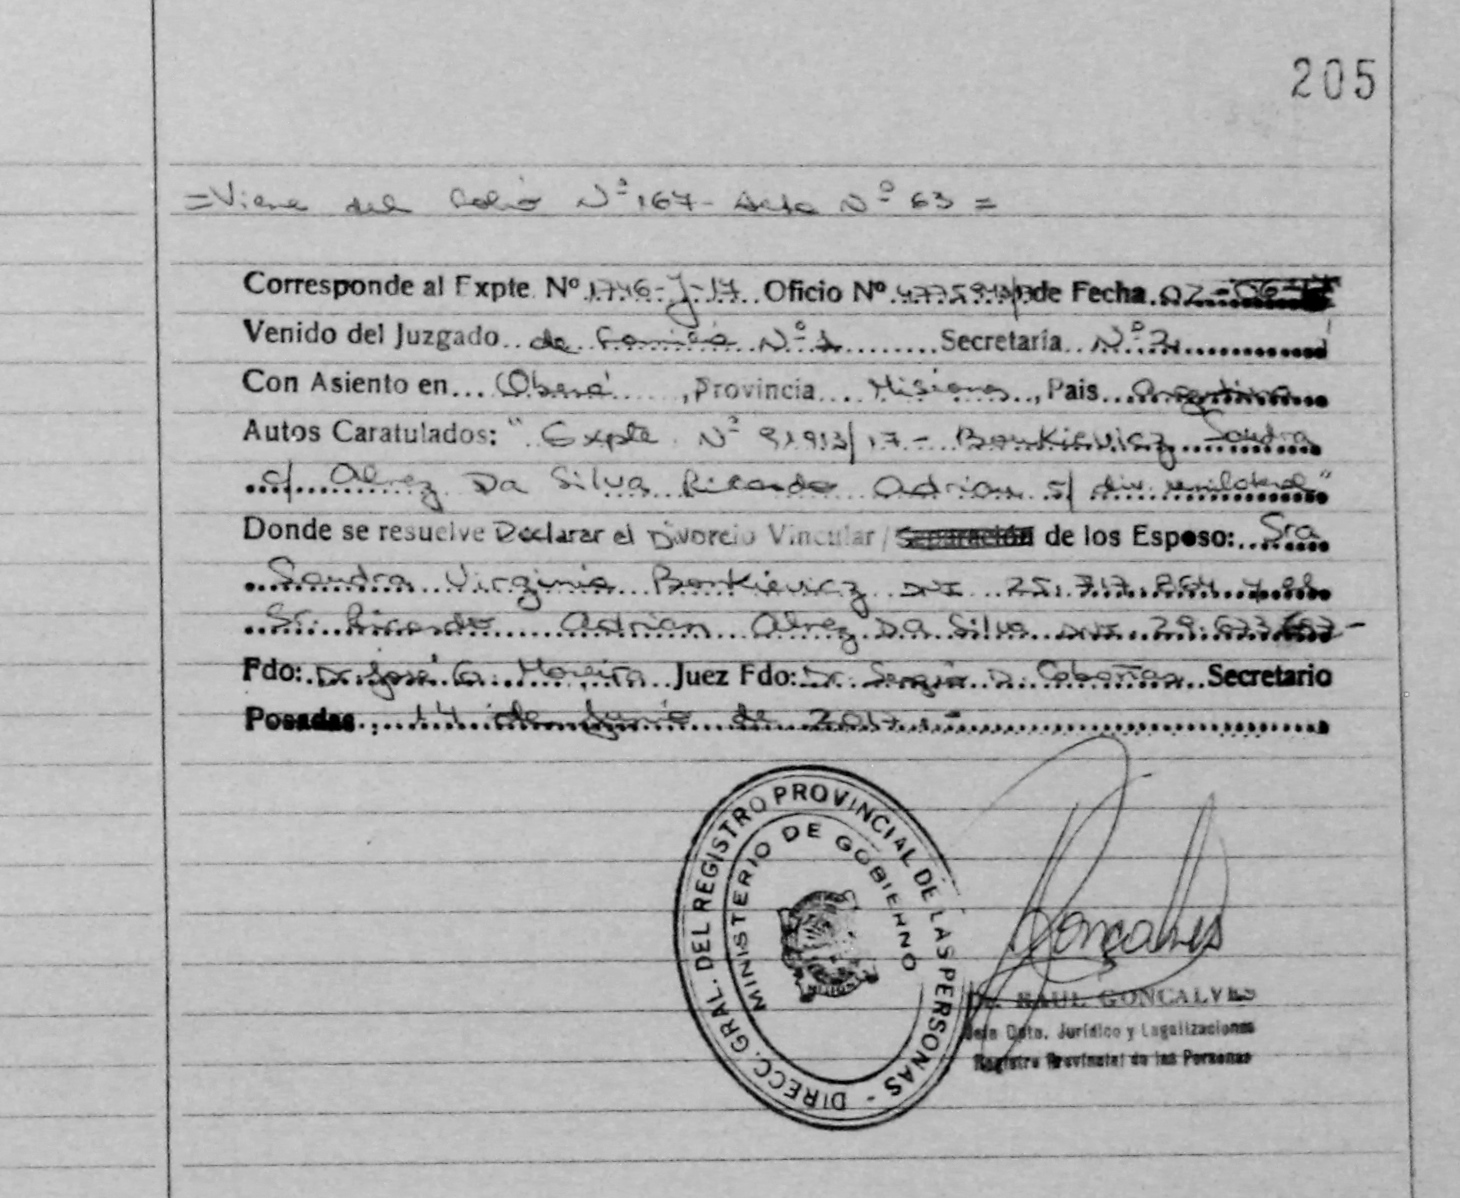 205
=Viene del Folio Nº 167- Acta Nº 63 =
Corresponde al Expte. Nº 1746-J-17 Oficio Nº de Fecha 02-06-17
Venido del Juzgado de Familia Nº 1 Secretaría Nº 2
Con Asiento en Oberá, Provincia Misiones, Pais Argentina
Autos Caratulados: "Expte. Nº 91913/17- Bonkievicz Sandra
c/ Alvez Da Silva Ricardo Adrian s/ div. unilateral"
Donde se resuelve Declarar el Divorcio Vincular / Separación de los Esposo: Sra
Sandra Virginia Bonkievicz DNI 25.717.864 y el
Sr. Ricardo Adrian Alvez Da Silva DNI 29.673.
Fdo: Dr. José G. Moreira Juez Fdo: Dr. Sergio D. Cabañas Secretario
Posadas, 14 de Junio de 2017.-
DIRECC. GRAL. DEL REGISTRO PROVINCIAL DE LAS PERSONAS -
MINISTERIO DE GOBIERNO
MISIONES
Goncalves
Dr. RAUL GONCALVES
Jefe Dpto. Jurídico y Legalizaciones
Registro Provincial de las Personas